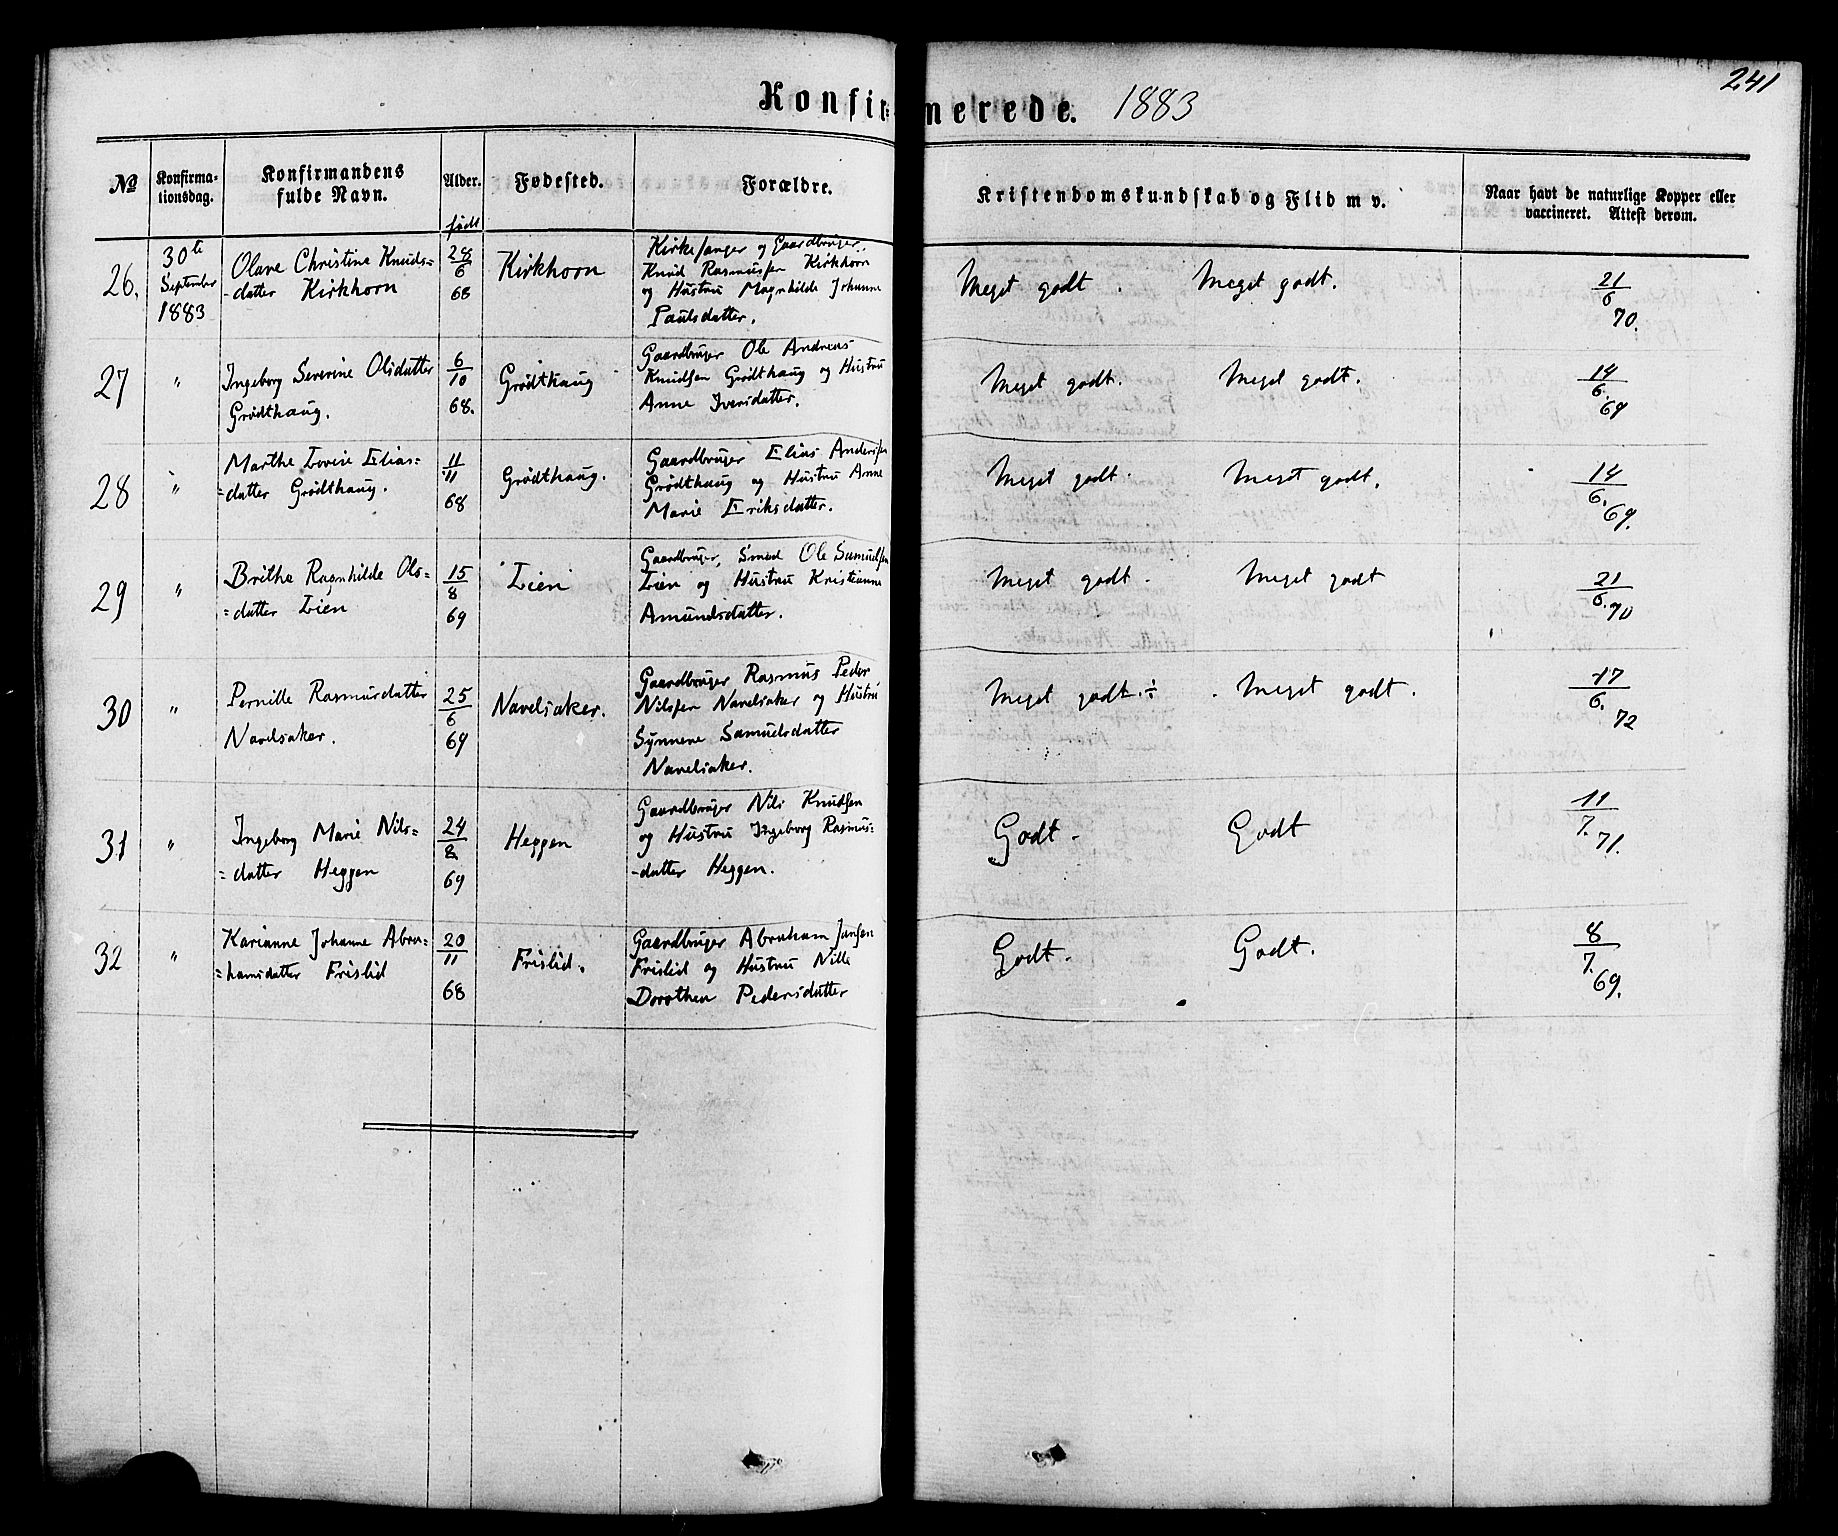 241
Konfirmerede. 1883
№
Konfirma-
tionsdag.
Konfirmandens
fulde Navn.
Alder.
født
Fødested.
Forældre.
Kristendomskundskab og Flid m v.
Naar havt de naturlige Kopper eller
vaccineret. Attest derom.
26.
30te
September
1883
Olave Christine Knuds=
-datter Kirkhorn
28/6
68
Kirkhorn
Kirkesanger og Gaardbruger
Knud Rasmussen Kirkhorn
og Hustru Magnhilde Johanne
Paulsdatter.
Meget godt. Meget godt.
21/6
70.
27 "
Ingeborg Severine Olsdatter
Grødthaug.
6/10
68.
Grødthaug
Gaardbruger Ole Andreas
Knudsen Grødthaug og Hustru
Anne Iversdatter.
Meget godt. Meget godt.
14/6.
69
28 "
Marthe Lovise Elias=
=datter Grødthaug.
11/11
68
Grødthaug.
Gaardbruger Elias Andersen
Grødthaug og Hustru Anne
Marie Eriksdatter.
Meget godt. Meget godt.
14/6.
69.
29 "
Brithe Ragnhilde Ols=
=datter Lien
15/8
69
Lien
Gaardbruger, Smed Ole Samuelsen
Lien og Hustru Kristianne
Amundsdatter.
Meget godt. Meget godt
21/6.
70
30 "
Pernille Rasmusdatter
Navelsaker.
25/6
69
Navelsaker.
Gaardbruger Rasmus Peder
Nilssen Navelsaker og Hustru
Synneve Samuelsdatter
Navelsaker.
Meget godt ÷ . Meget godt.
17/6.
72
31 "
Ingeborg Marie Nils=
=datter Heggen
24/8
69
Heggen
Gaardbruger Nils Knudsen
og Hustru Ingeborg Rasmus=
-datter Heggen.
Godt. Godt
11/7.
71.
32 "
Karianne Johanne Abra=
=hamsdatter Frislid
20/11
68
Frislid.
Gaardbruger Abraham Jansen
Frislid og Hustru Nille
Dorothea Pedersdatter
Godt. Godt.
8/7.
69.